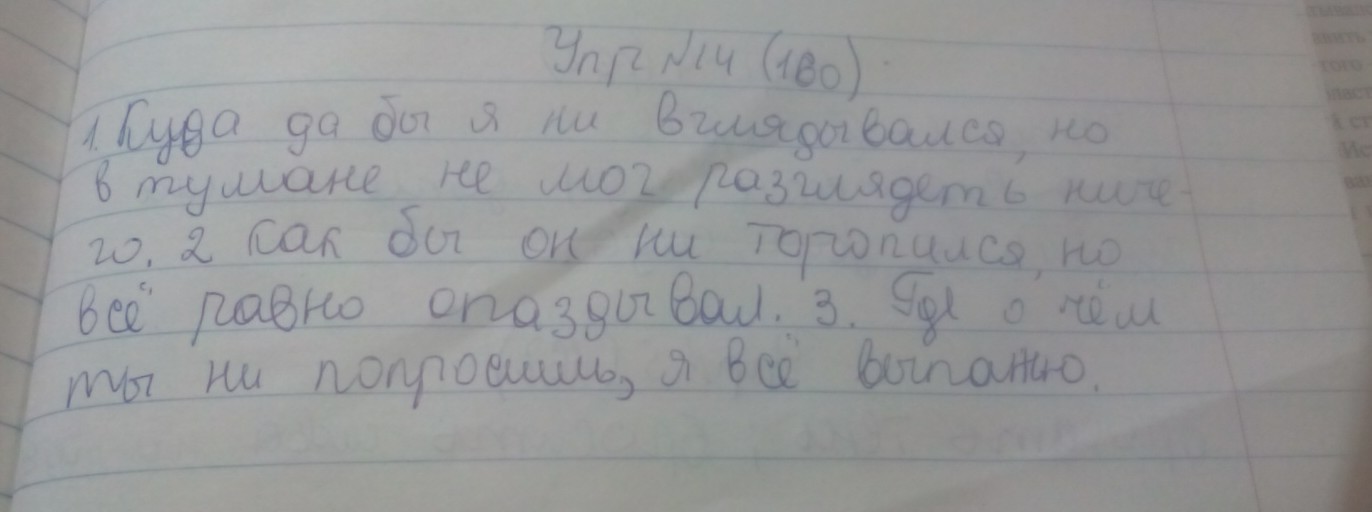 Упр №14 (160)
1. Куда да бы я ни вглядывался, но
в тумане не мог разглядеть ниче-
го. 2 Как бы он ни торопился, но
всё равно опаздывал. 3. Где о чём
ты ни попросишь, я всё выпажню.